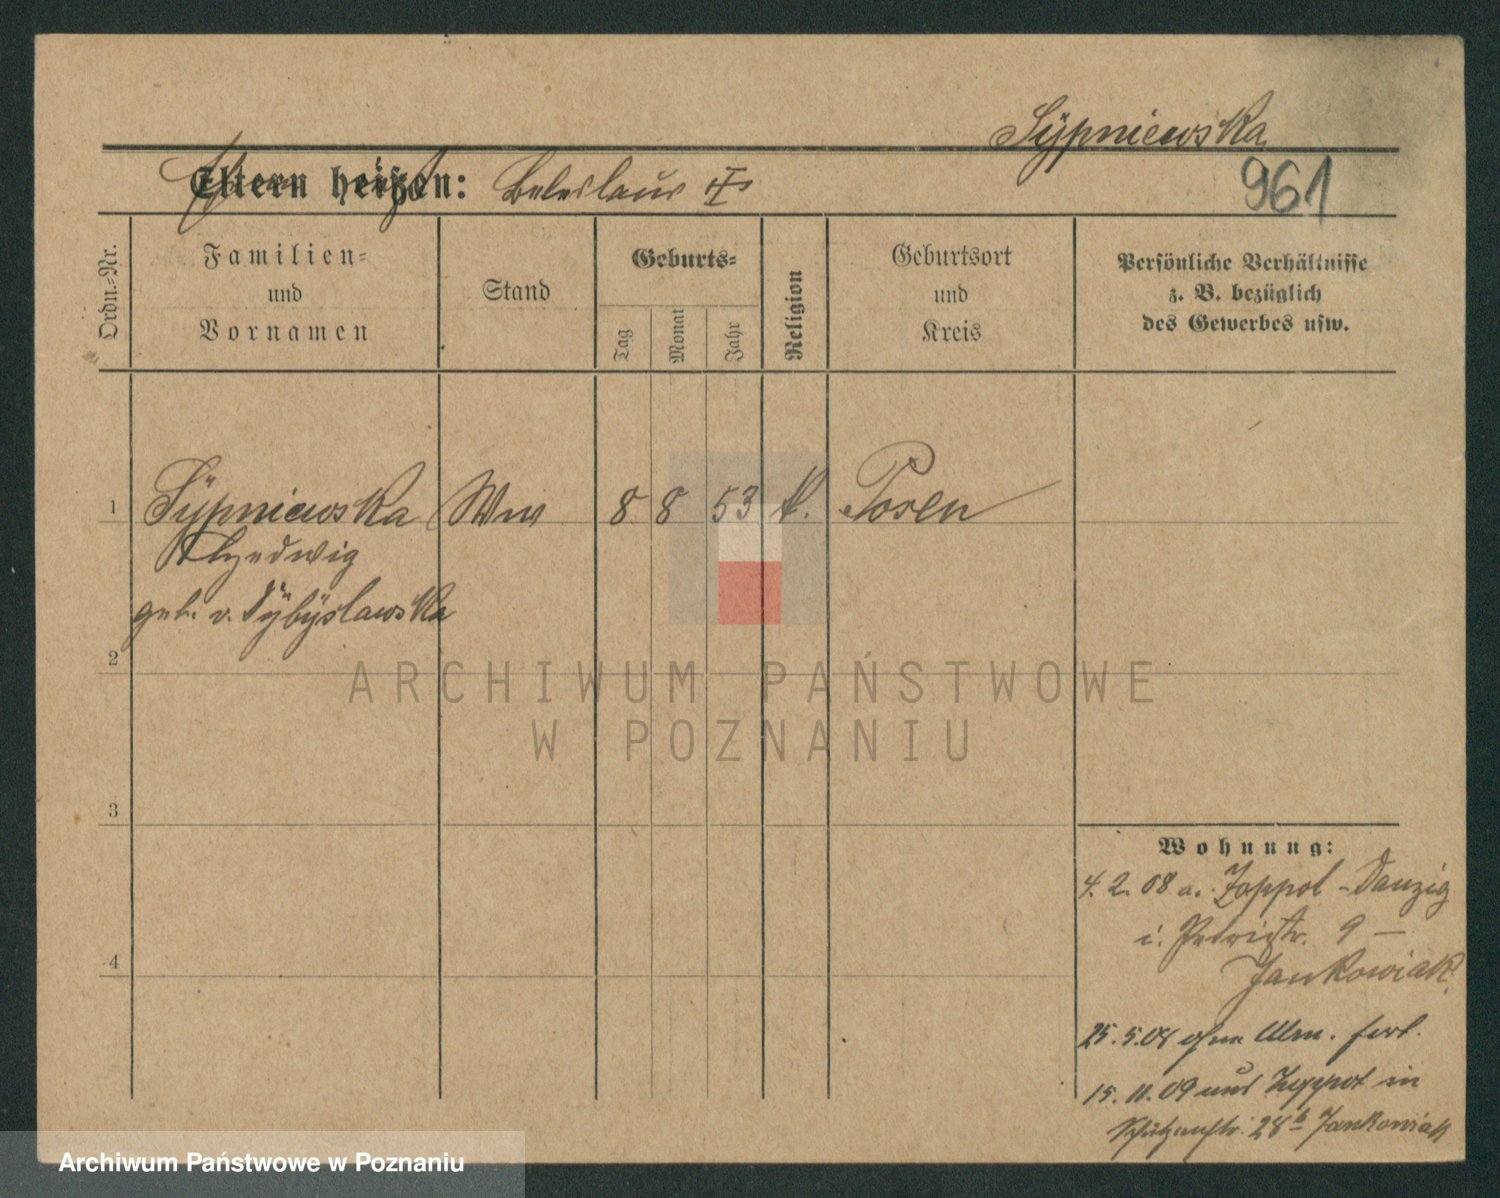 Sÿpniewska
961
Eltern heißen: Boleslaus
Ordn.-Nr.
Familien-
und
Vornamen
Stand
Geburts-
Tag
Monat
Jahr
Religion
Geburtsort
und
Kreis
Persönliche Verhältnisse
z. B. bezüglich
des Gewerbes usw.
1 Sÿpniewska Ww 8 8 53 k. Posen
Hedwig
geb. v.
2
3
4
Wohnung:
4. 2. 08 a. Zoppot - Danzig
i. Petristr. 9 –
Jankowiak
25. 5. 08 ohne Abm. fort.
15. 11. 09 aus Zoppot in
Schützenstr. 28 b Jankowiak
ARCHIWUM PAŃSTWOWE
W POZNANIU
Archiwum Państwowe w Poznaniu